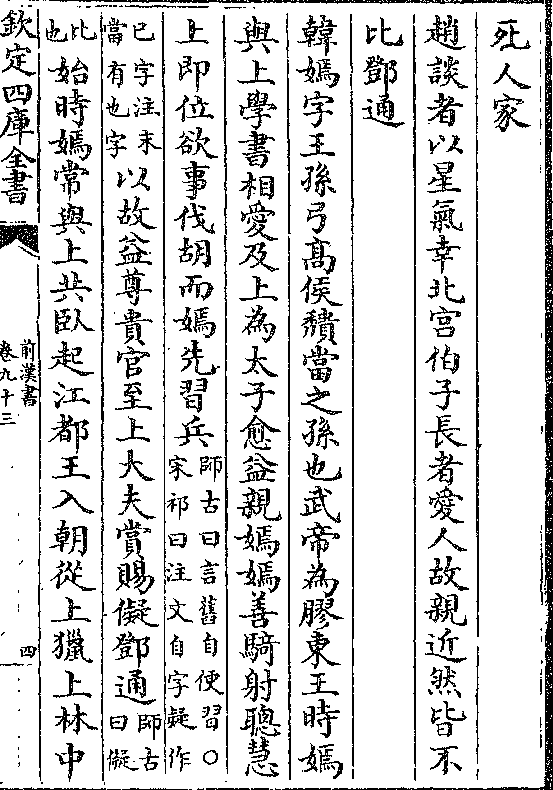 死人家
趙談者以星氣幸北宮伯子長者愛人故親近然皆不
比鄧通
韓嫣字王孫弓髙侯頽當之孫也武帝為膠東王時嫣
與上學書相愛及上為太子愈益親嫣嫣善騎射聰慧
上即位欲事伐胡而嫣先習兵
師古曰言舊自便習○
宋祁曰注文自字疑作
已字注末
當有也字
以故益尊貴官至上大夫賞賜儗鄧通
師古
曰儗
比
也
始時嫣常與上共臥起江都王入朝從上獵上林中
欽定四庫全書
前漢書
卷九十三
四